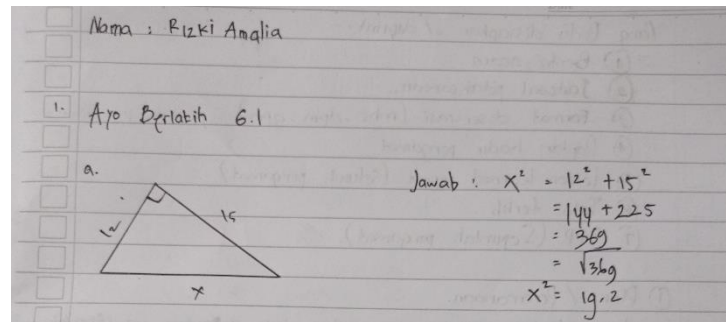 Nama : Rizki Amalia
1. Ayo Berlatih 6.1
a.
12
15
x
Jawab : x² = 12² + 15²
= 144 + 225
= 369
= √369
x² = 19.2